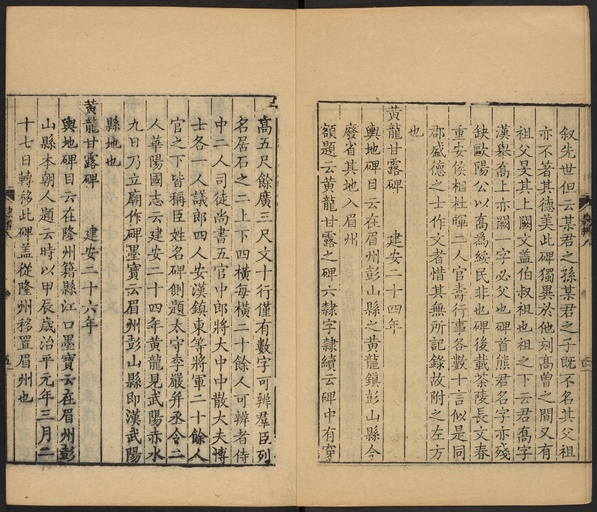 叙先世但云某君之孫某君之子既不名其父祖
亦不著其德美此碑獨異於他刻高曾之間又有
祖父旻其上闕文蓋伯叔祖也祖之下云君喬字
漢舉喬上亦闕一字必父也碑首熊君名字亦殘
缺歐陽公以喬為綏民非也碑後載荼陵長文春
重安侯相杜暉二人官壽行事各數十言似是同
郡盛德之士作文者惜其無所記錄故附之左方
也
黃龍甘露碑 建安二十四年
輿地碑目云在眉州彭山縣之黃龍鎮彭山縣今
廢省其地入眉州
額題云黃龍甘露之碑六隸字隸續云碑中有穿
高五尺餘廣三尺文十行僅有數字可辨羣臣列
名居石之二上下四橫每橫二十餘人可辨者侍
中二人司徒尚書五官中郎將大中中散大夫博
士各一人議郎四人安漢鎮東等將軍二十餘人
官之下皆稱臣姓名碑側題太守李嚴丞令二
人華陽國志云建安二十四年黃龍見武陽赤水
九日乃立廟作碑墨寶云眉州彭山縣即漢武陽
縣地也
黃龍甘露碑 建安二十六年
輿地碑目云在隆州籍縣江口墨寶云在眉州彭
山縣本朝人題云時以甲辰歲治平元年三月二
十七日轉移此碑蓋從隆州移置眉州也